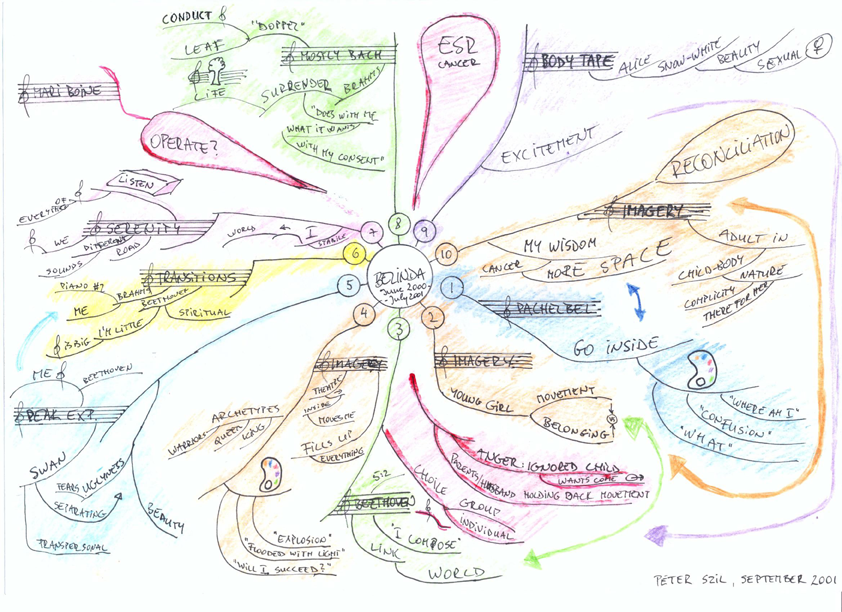 BELINDA
June 2000-
-July 2001
1
PACHELBEL
GO INSIDE
"WHERE AM I"
"CONFUSION"
"WHAT"
2
IMAGERY
YOUNG GIRL
MOVEMENT
BELONGING
ANGER: IGNORED CHILD
WANTS COME
PARENTS/HUSBAND HOLDING BACK MOVEMENT
CHOICE
GROUP
INDIVIDUAL
3
BEETHOVEN
"I COMPOSE"
LINK
WORLD
4
IMAGERY
THEATRE
INSIDE
MOVES ME
FILLS UP
EVERYTHING
ARCHETYPES
WARRIOR
QUEEN
KING
"EXPLOSION"
"FLOODED WITH LIGHT"
"WILL I SUCCEED?"
5
PEAK EXP.
ME
BEETHOVEN
SWAN
TEARS UGLYNESS
SEPARATING
TRANSPERSONAL
BEAUTY
6
TRANSITIONS
PIANO #2
BRAHMS
ME
BEETHOVEN
I'M LITTLE
IS BIG
SPIRITUAL
7
SERENITY
LISTEN
OF
EVERYTHING
WE
DIFFERENT
ROAD
SOUNDS
WORLD
I
STABILE
OPERATE?
MARI BOINE
8
MOSTLY BACH
"DOPPEL"
CONDUCT
LEAF
LIFE
SURRENDER
BRAHMS
"DOES WITH ME
WHAT IT WANTS
WITH MY CONSENT"
9
ESR
CANCER
BODY TAPE
ALICE
SNOW-WHITE
BEAUTY
SEXUAL
EXCITEMENT
10
RECONCILIATION
IMAGERY
ADULT IN
CHILD-BODY
NATURE
COMPLICITY
THERE FOR HER
MY WISDOM
CANCER
MORE SPACE
PETER SZIL, SEPTEMBER 2001